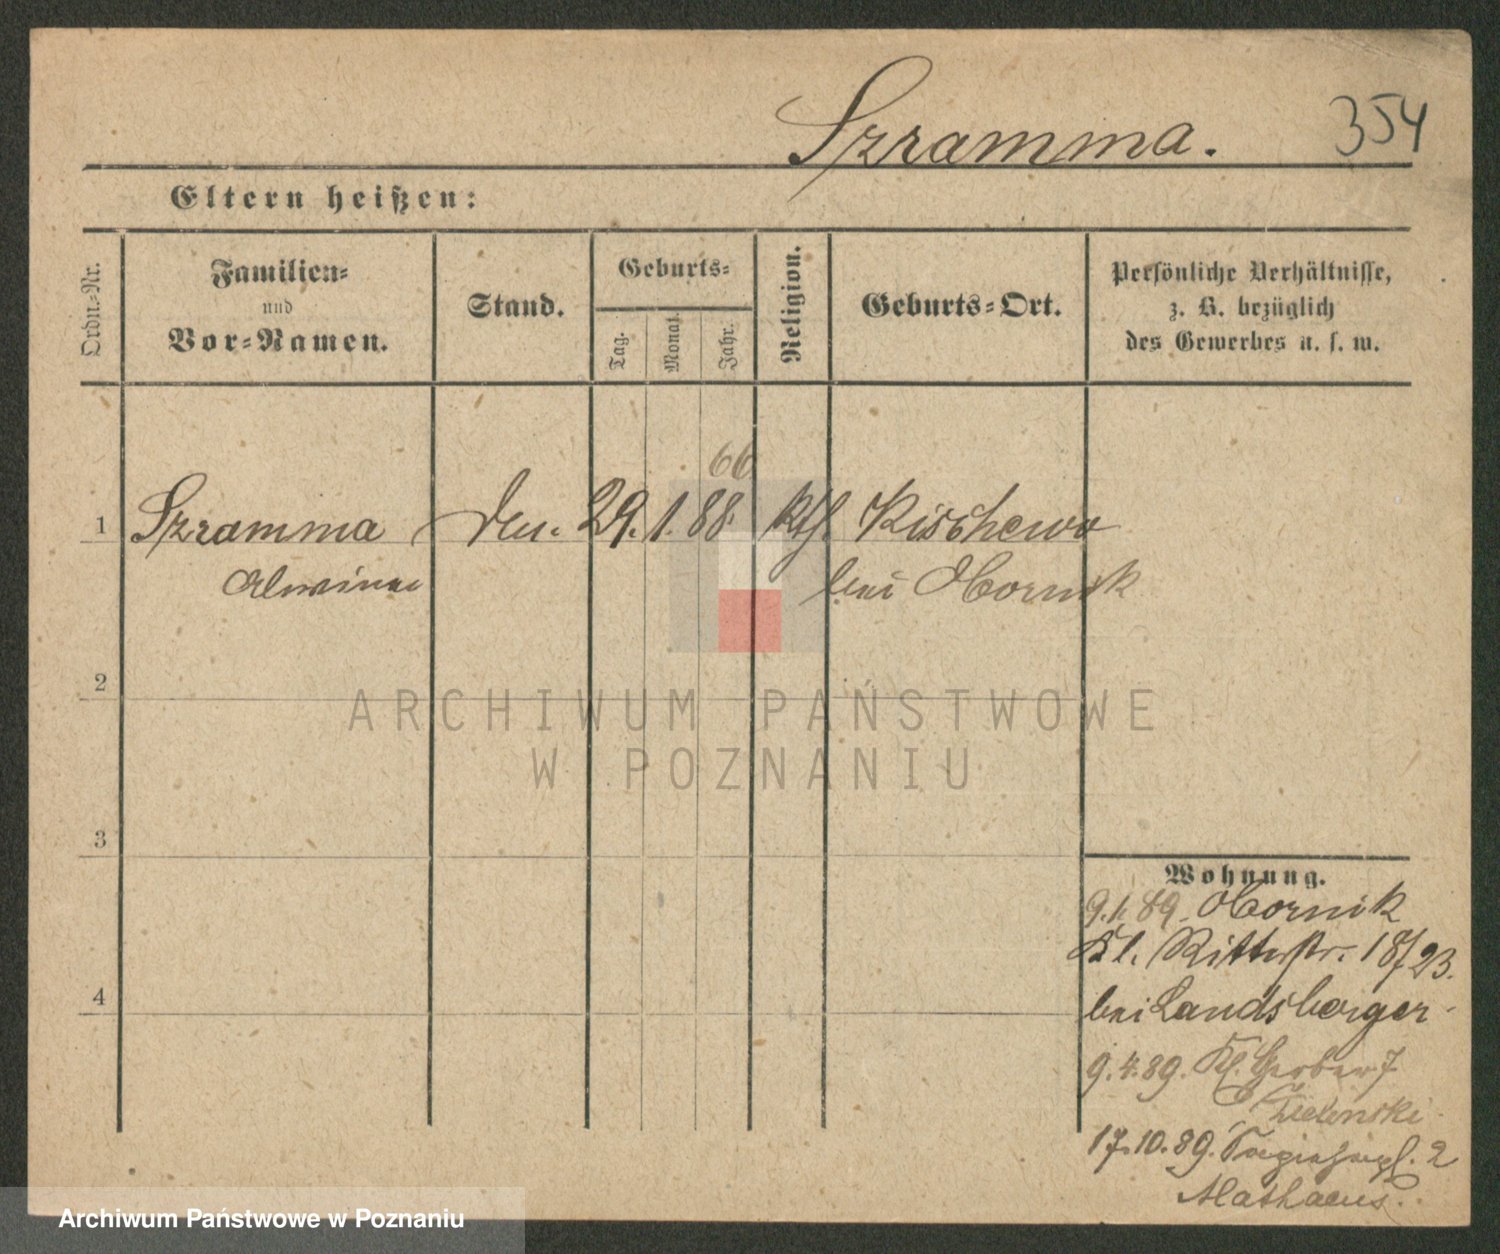 Szramma.
354
Eltern heißen:
Ordn.-Nr.
Familien-
und
Vor-Namen.
Stand.
Geburts-
Tag.
Monat.
Jahr.
Religion.
Geburts-Ort.
Persönliche Verhältnisse,
z. B. bezüglich
des Gewerbes u. s. w.
66
1 Szramma 29. 1. 88. kth. Kischewo
Alwine bei Obornik
2
ARCHIWUM PAŃSTWOWE
W POZNANIU
3
Wohnung.
9.1.89. Obornik
Kl. Ritterstr. 18/23.
bei Landsberger
4
9.4.89. Kl. Gerber 7
17.10.89. 2
Mathaeus.
Archiwum Państwowe w Poznaniu